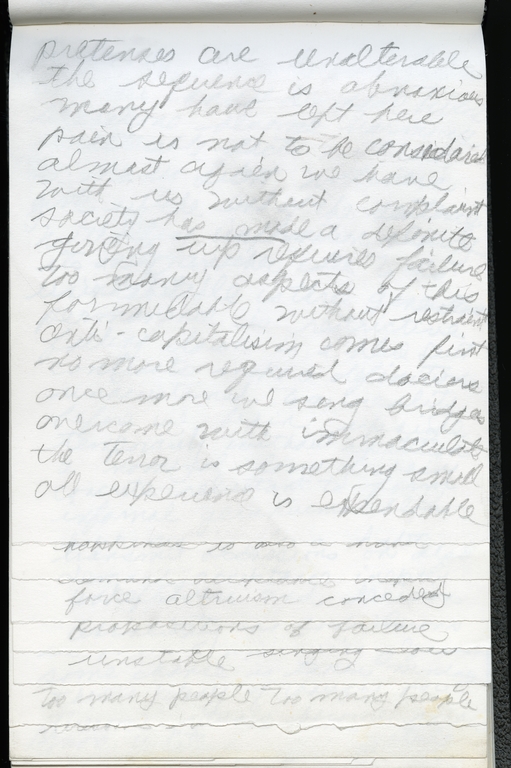 pretenses are unalterable
the sequence is obnoxious
many have left here
pain is not to be considered
almost again we have
with us without complaint
society has made a definite
giving up requires failure
too many aspects of this
formidable without restraint
anti-capitalism comes first
no more required
once more we sang bridges
overcome with immaculate
the terror is something small
all experience is expendable
force altruism conceded
propositions of failure
unstable singing
too many people too many people